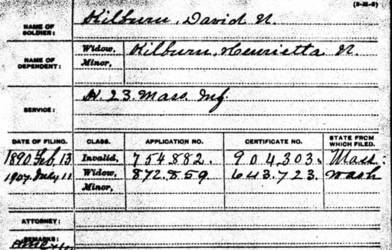 (3-21-6)
NAME OF SOLDIER: Kilburn, David N.
NAME OF DEPENDENT: Widow, Kilburn, Henrietta N.
Minor,
SERVICE: H. 23. Mass. Inf.
DATE OF FILING. CLASS. APPLICATION NO. CERTIFICATE NO. STATE FROM WHICH FILED.
1890 Feb. 13 Invalid, 754.882. 904,303. Mass.
1907 July 11 Widow, 872.859 643.723. Wash
Minor,
ATTORNEY:
REMARKS: